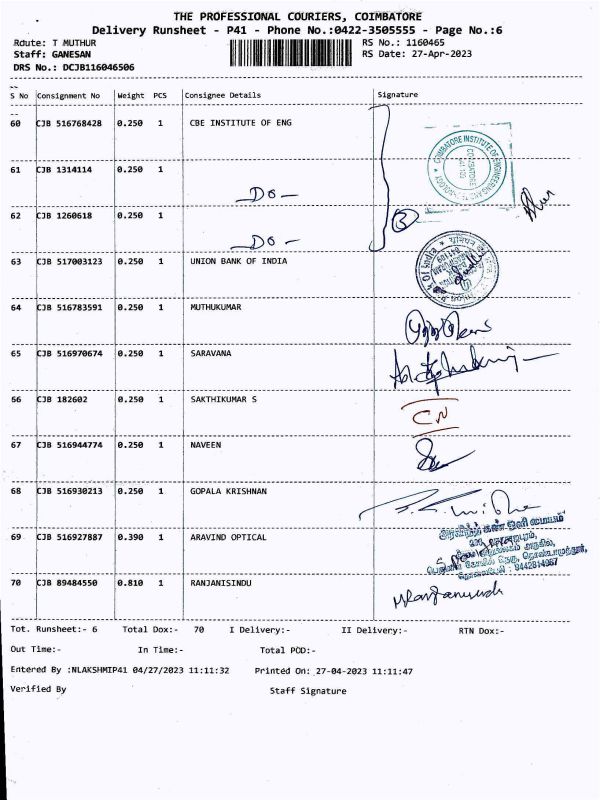 THE PROFESSIONAL COURIERS, COIMBATORE
Delivery Runsheet - P41 - Phone No.:0422-3505555 - Page No.:6
Rdute: T MUTHUR RS No.: 1160465
Staff: GANESAN RS Date: 27-Apr-2023
DRS No.: DCJB116046506
S No Consignment No Weight PCS Consignee Details Signature
60 CJB 516768428 0.250 1 CBE INSTITUTE OF ENG
COIMBATORE INSTITUTE OF ENGINEERING AND TECHNOLOGY
COIMBATORE
641 109
61 CJB 1314114 0.250 1
DO
62 CJB 1260618 0.250 1
DO
3
63 CJB 517003123 0.250 1 UNION BANK OF INDIA
of India
64 CJB 516783591 0.250 1 MUTHUKUMAR
65 CJB 516970674 0.250 1 SARAVANA
66 CJB 182602 0.250 1 SAKTHIKUMAR S
CN
67 CJB 516944774 0.250 1 NAVEEN
68 CJB 516930213 0.250 1 GOPALA KRISHNAN
அரவிந்த் கண் ஒளி மையம்
69 CJB 516927887 0.390 1 ARAVIND OPTICAL
தொலைபேசி : 9442814967
70 CJB 89484550 0.810 1 RANJANISINDU
Tot. Runsheet:- 6 Total Dox:- 70 I Delivery:- II Delivery:- RTN Dox:-
Out Time:- In Time:- Total POD:-
Entered By :NLAKSHMIP41 04/27/2023 11:11:32 Printed On: 27-04-2023 11:11:47
Verified By Staff Signature